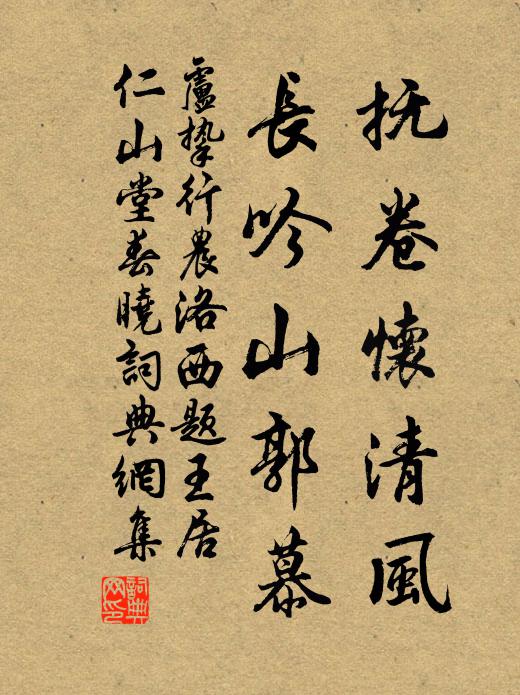 抚卷懷清風
長吟山郭慕
盧摯行農洛西題王居
仁山堂春曉詞典網集
詞典网印